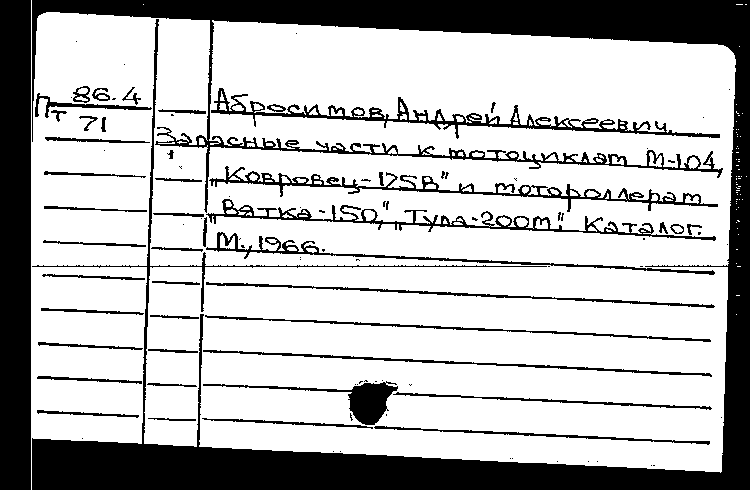 86.4
Пт 71
Абросимов, Андрей Алексеевич.
Запасные части к мотоциклам М-104,
„Ковровец-175В" и мотороллерам
„Вятка-150", „Тула-200м". Каталог.
М., 1966.